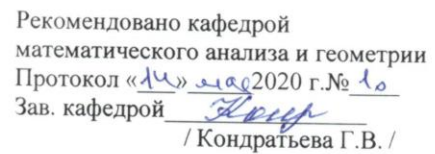 Рекомендовано кафедрой
математического анализа и геометрии
Протокол «14» мая 2020 г.№ 10
Зав. кафедрой
/ Кондратьева Г.В. /